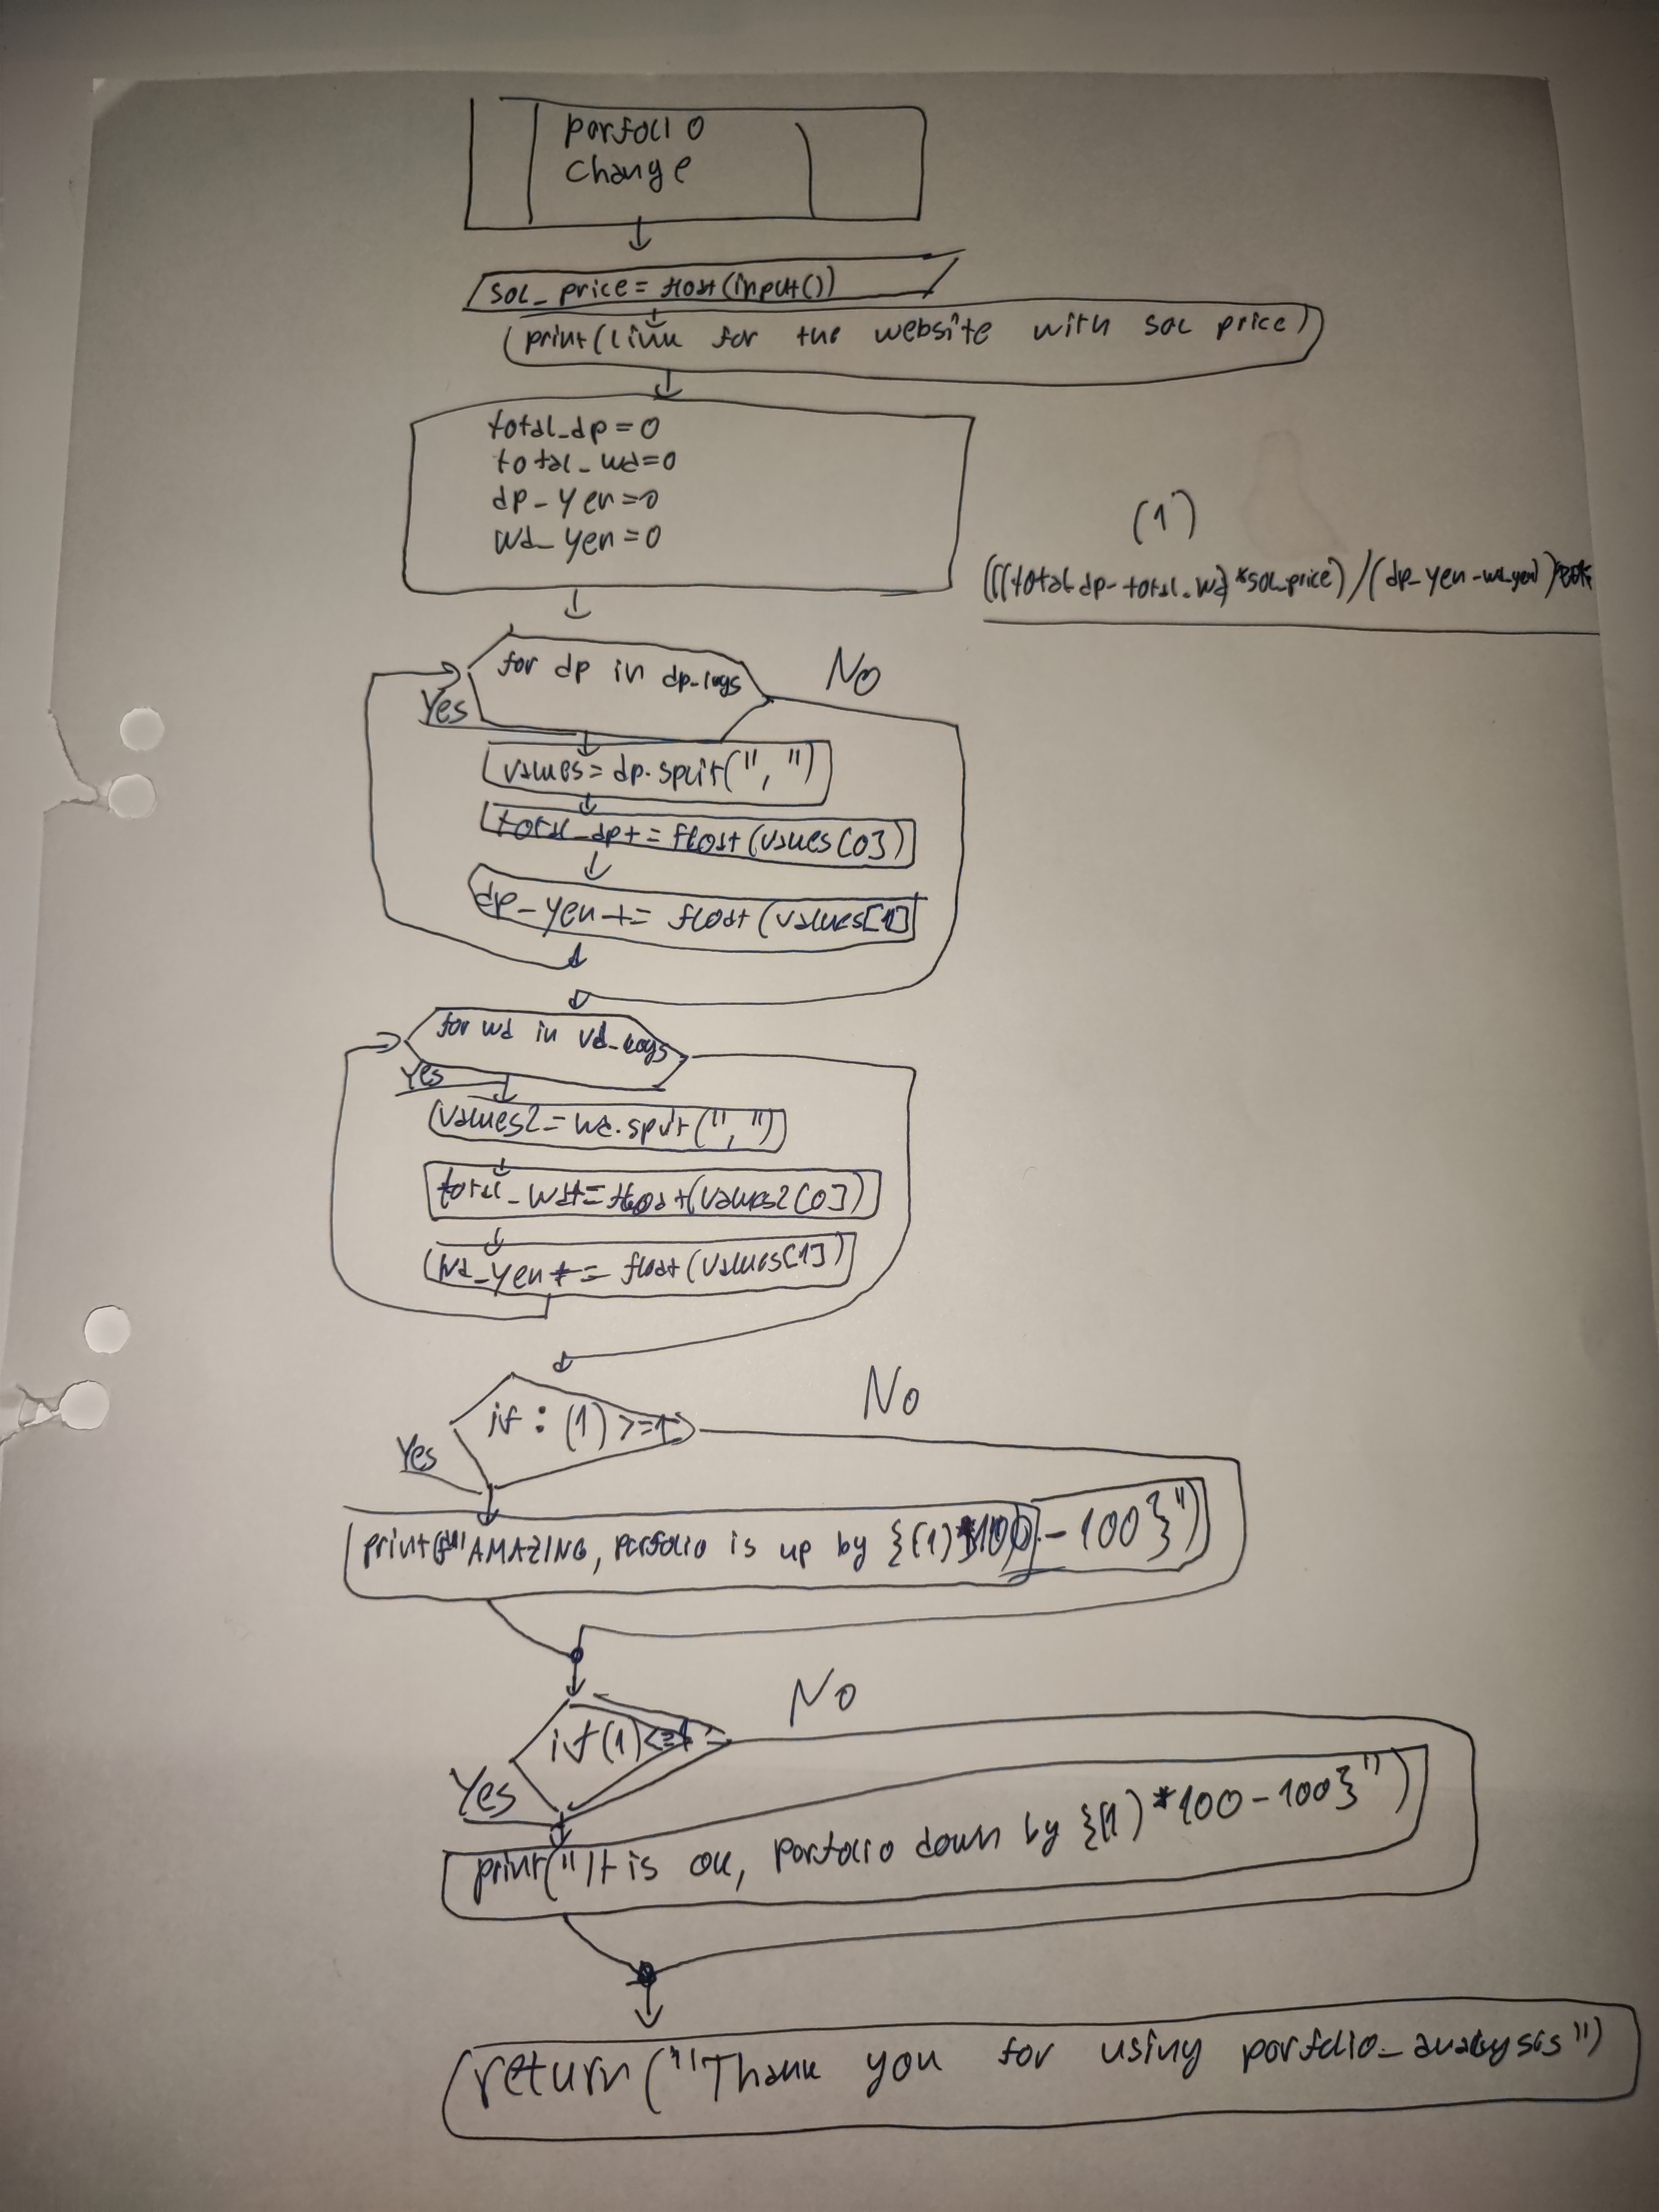 porfolio
change
sol_price = float(input())
print(link for the website with sol price)
total_dp=0
total_wd=0
dp_yen=0
wd_yen=0
(1)
(((total_dp-total_wd)*sol_price)/(dp_yen-wd_yen))
for dp in dp_logs
No
Yes
values=dp.split(",")
total_dp+=float(values[0])
dp_yen+= float(values[1]
for wd in wd_logs
Yes
values2=wd.split(",")
total_wd+=float(values2[0])
wd_yen+= float(values[1])
if: (1) >=1
No
Yes
print(f"AMAZING, porfolio is up by {(1)*100-100}")
if(1)<=1
No
Yes
print("It is ok, porfolio down by {(1)*100-100}")
return("Thank you for using porfolio_analysis")